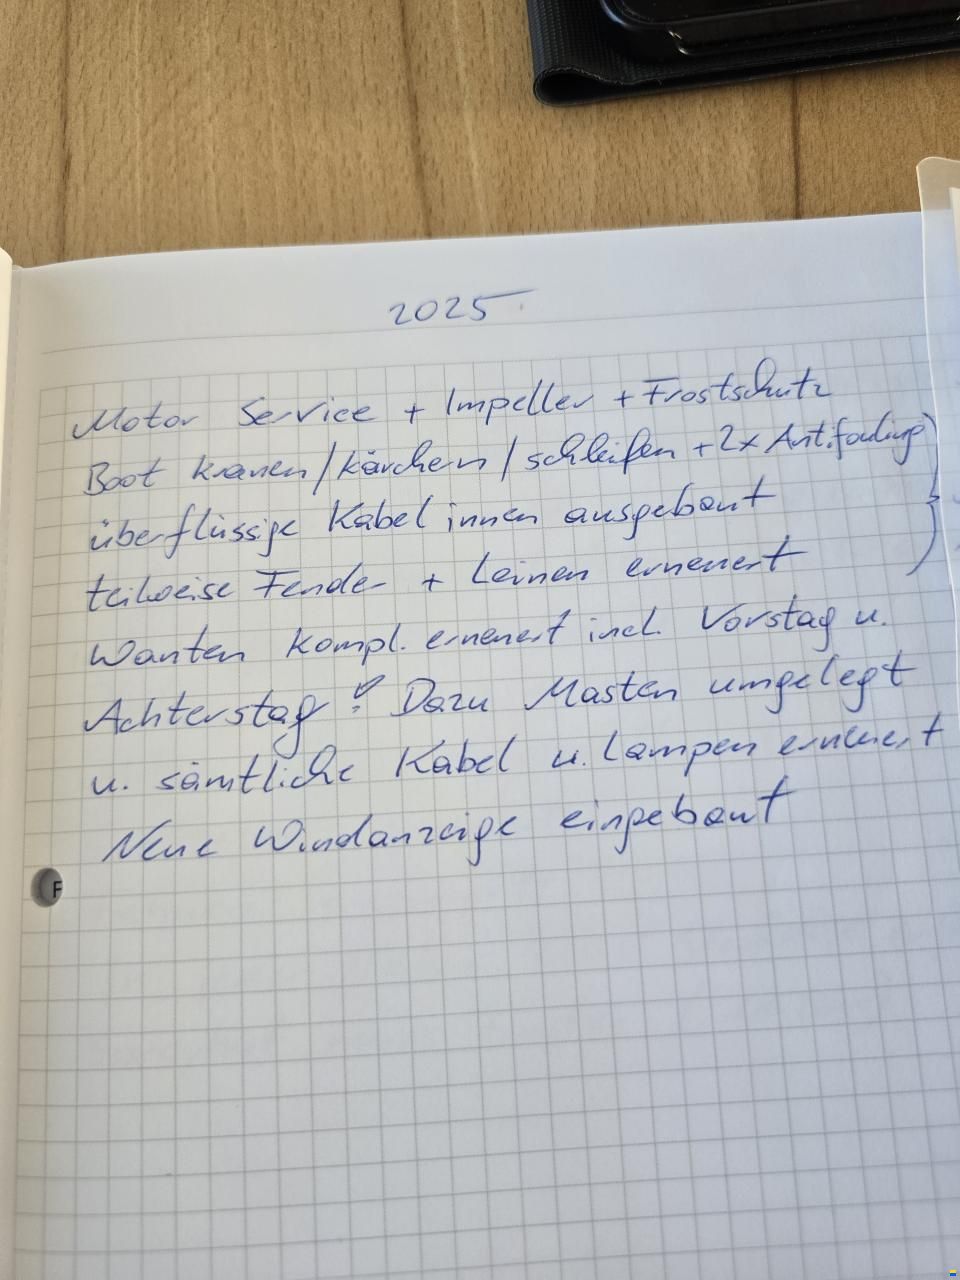 2025
Motor Service + Impeller + Frostschutz
Boot kranen/kärchern/schleifen + 2x Antifouling
überflüssige Kabel innen ausgebaut
teilweise Fender + Leinen erneuert
Wanten kompl. erneuert incl. Vorstag u.
Achterstag! Dazu Masten umgelegt
u. sämtliche Kabel u. Lampen erneuert
Neue Windanzeige eingebaut
F